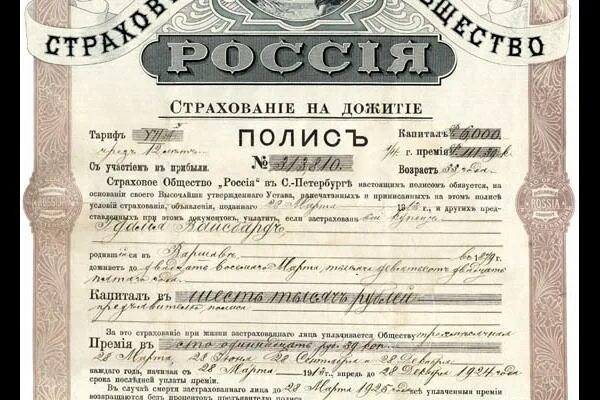 СТРАХОВ ЩЕСТВО
РОССІЯ
СТРАХОВАНІЕ НА ДОЖИТІЕ
Тарифъ ПОЛИСЪ Капиталъ Р. 6,000
чрезъ 12 лѣтъ 1/4 премія Р. 111.39 к.
Съ участіемъ въ прибыли. № 313810. Возрастъ 33 года
Страховое Общество „Россія" въ С.-Петербургѣ настоящимъ полисомъ обязуется, на
основаніи своего Высочайше утвержденнаго Устава, напечатанныхъ и приписанныхъ на этомъ полисѣ
условій страхованія, объявленія, поданнаго 29 Марта и другихъ пред-
ставленныхъ при этомъ документовъ, уплатить, если застрахованный купецъ

родившійся въ Варшавѣ въ 1879 г.
доживетъ до двадцать восьмого Марта тысяча девятьсотъ двадцать
пятаго года
Капиталъ въ шесть тысячъ рублей
предъявителю полиса
За это страхованіе при жизни застрахованнаго лица уплачивается Обществу трехмѣсячная
Премія въ сто одиннадцать руб. 39 коп.
28 Марта, 28 Іюня, 28 Сентября и 28 Декабря
каждаго года, начиная съ 28 Марта 1913 г. и до 28 Декабря 1924 года
срока послѣдней уплаты преміи.
Въ случаѣ смерти застрахованнаго лица до 28 Марта 1925 года уплаченныя преміи
возвращаются безъ процентовъ предъявителю полиса.
ROSSIA
ROSSIA